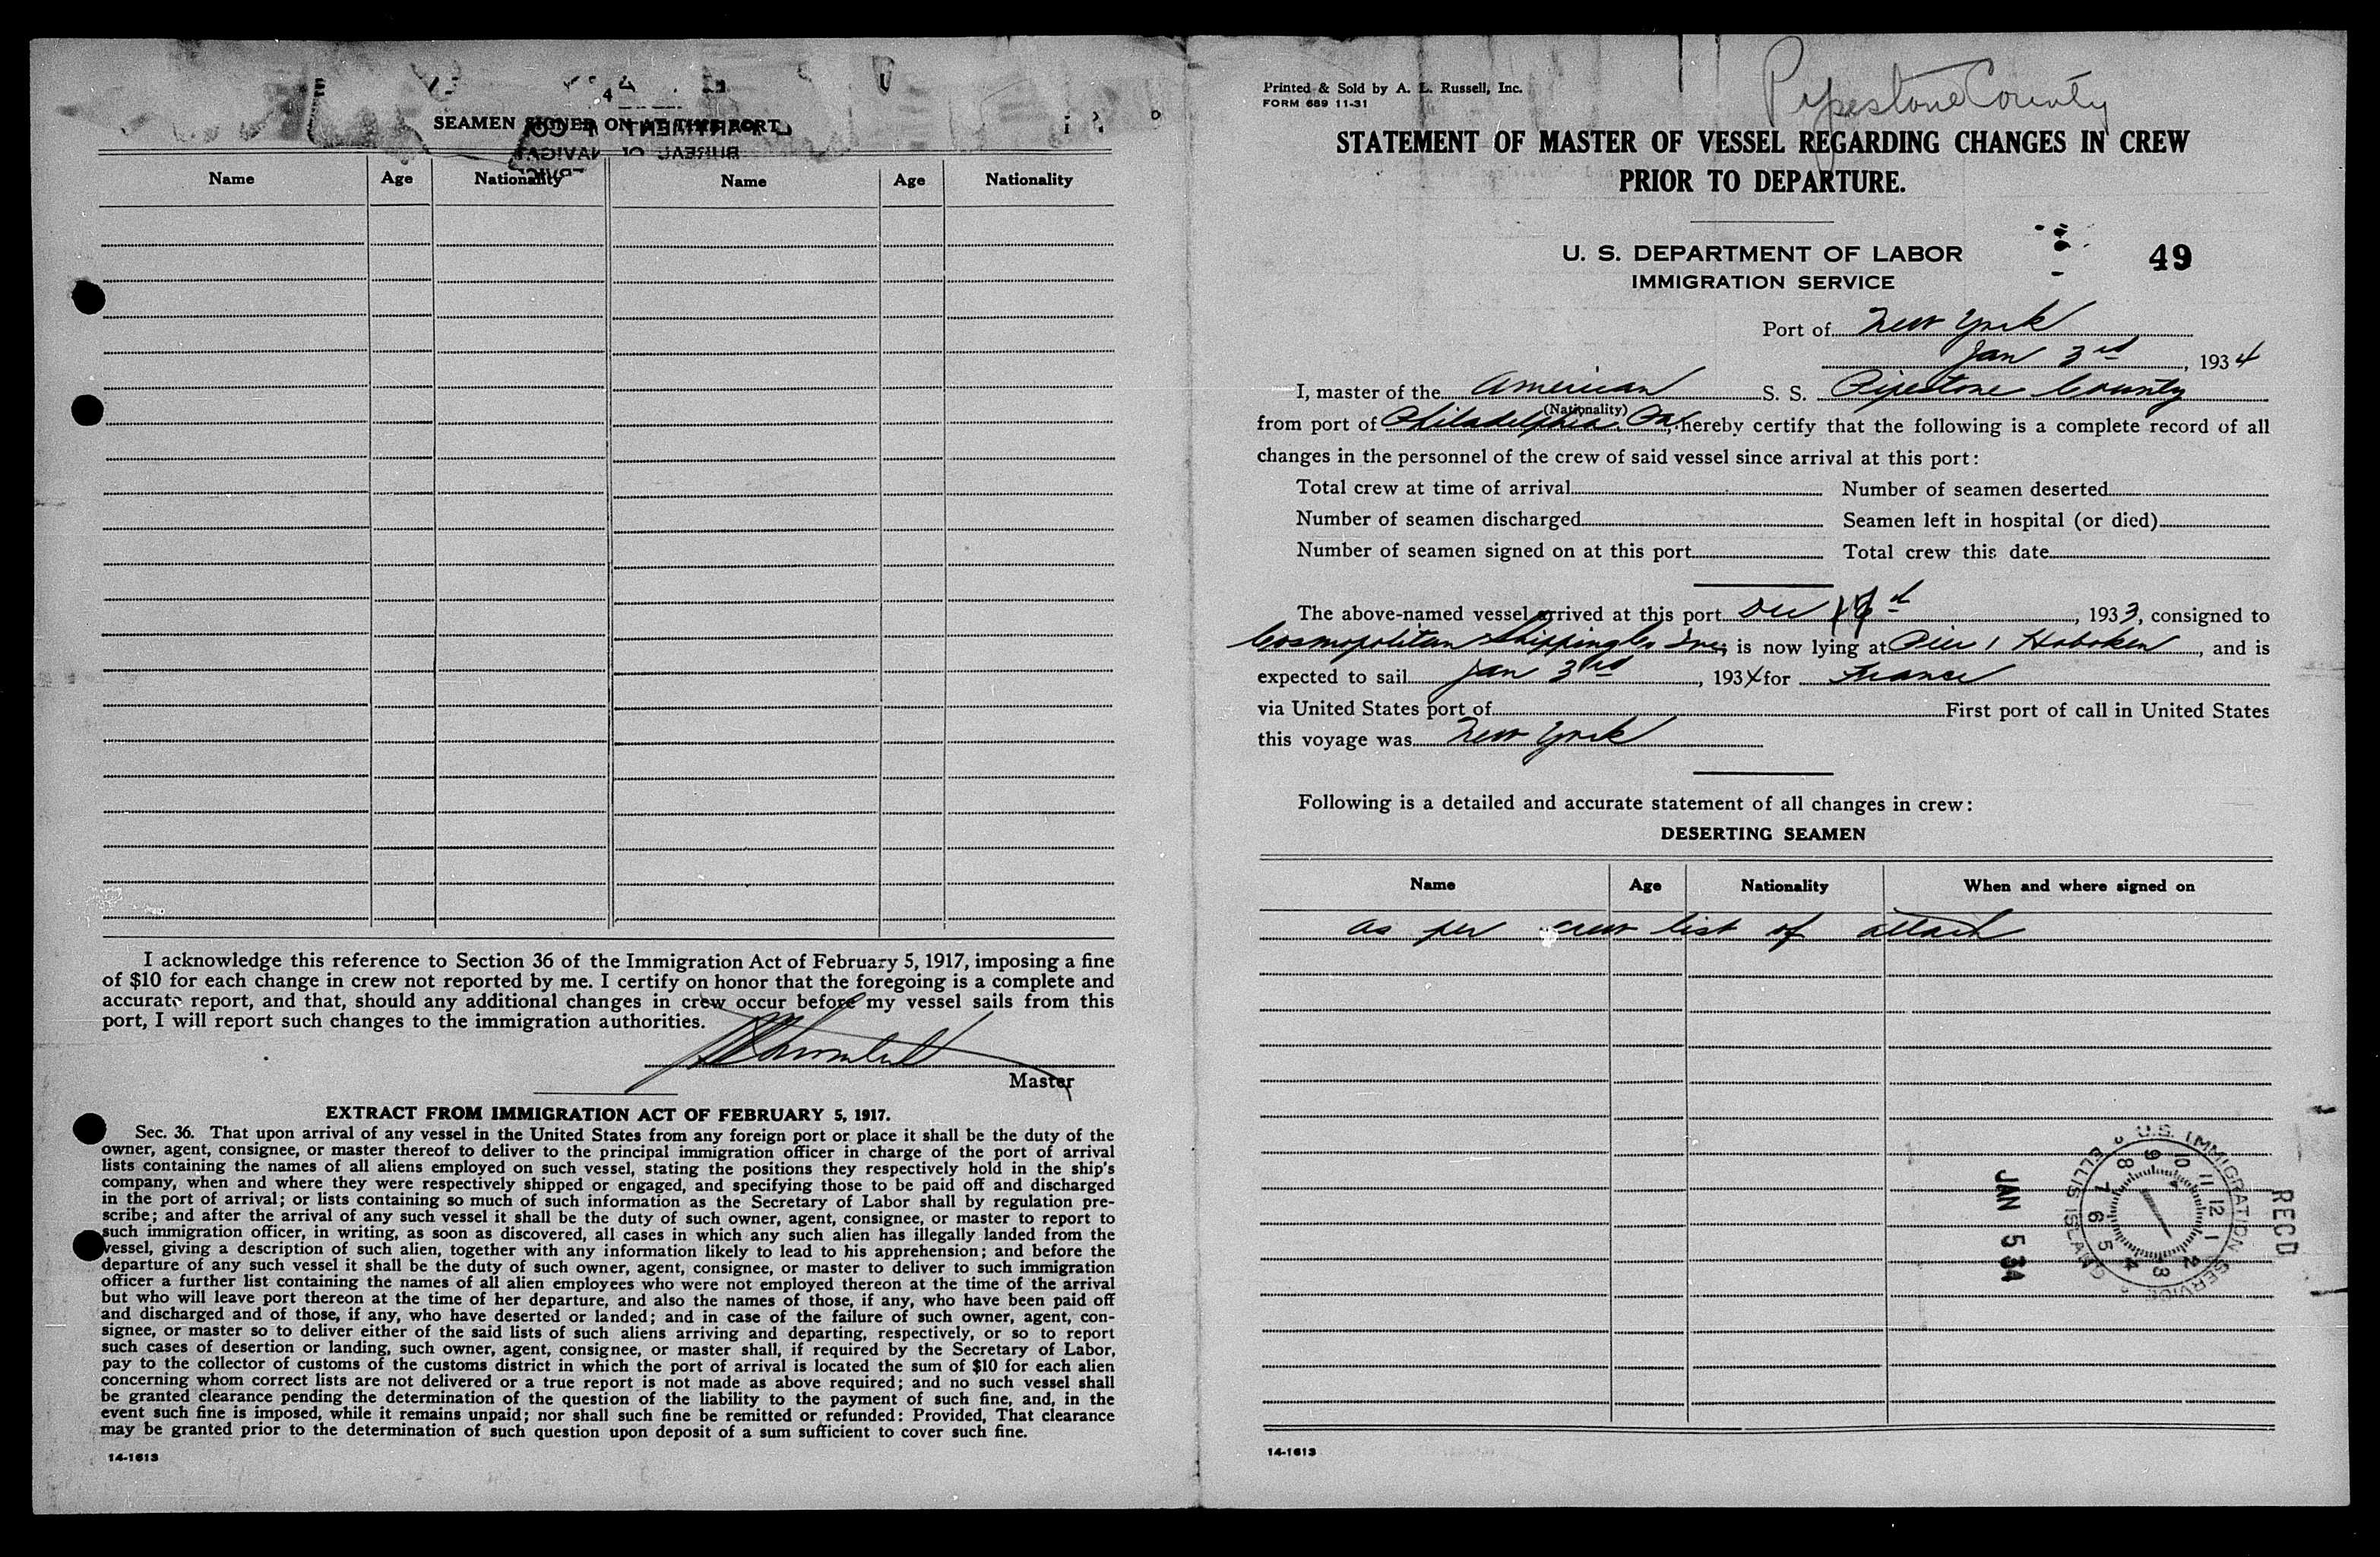 SEAMEN SIGNED ON AT THIS PORT
Name Age Nationality Name Age Nationality
I acknowledge this reference to Section 36 of the Immigration Act of February 5, 1917, imposing a fine
of $10 for each change in crew not reported by me. I certify on honor that the foregoing is a complete and
accurate report, and that, should any additional changes in crew occur before my vessel sails from this
port, I will report such changes to the immigration authorities.
Master
EXTRACT FROM IMMIGRATION ACT OF FEBRUARY 5, 1917.
Sec. 36. That upon arrival of any vessel in the United States from any foreign port or place it shall be the duty of the
owner, agent, consignee, or master thereof to deliver to the principal immigration officer in charge of the port of arrival
lists containing the names of all aliens employed on such vessel, stating the positions they respectively hold in the ship's
company, when and where they were respectively shipped or engaged, and specifying those to be paid off and discharged
in the port of arrival; or lists containing so much of such information as the Secretary of Labor shall by regulation pre-
scribe; and after the arrival of any such vessel it shall be the duty of such owner, agent, consignee, or master to report to
such immigration officer, in writing, as soon as discovered, all cases in which any such alien has illegally landed from the
vessel, giving a description of such alien, together with any information likely to lead to his apprehension; and before the
departure of any such vessel it shall be the duty of such owner, agent, consignee, or master to deliver to such immigration
officer a further list containing the names of all alien employees who were not employed thereon at the time of the arrival
but who will leave port thereon at the time of her departure, and also the names of those, if any, who have been paid off
and discharged and of those, if any, who have deserted or landed; and in case of the failure of such owner, agent, con-
signee, or master so to deliver either of the said lists of such aliens arriving and departing, respectively, or so to report
such cases of desertion or landing, such owner, agent, consignee, or master shall, if required by the Secretary of Labor,
pay to the collector of customs of the customs district in which the port of arrival is located the sum of $10 for each alien
concerning whom correct lists are not delivered or a true report is not made as above required; and no such vessel shall
be granted clearance pending the determination of the question of the liability to the payment of such fine, and, in the
event such fine is imposed, while it remains unpaid; nor shall such fine be remitted or refunded: Provided, That clearance
may be granted prior to the determination of such question upon deposit of a sum sufficient to cover such fine.
14-1613
Pipestone County
Printed & Sold by A. L. Russell, Inc.
FORM 689 11-31
STATEMENT OF MASTER OF VESSEL REGARDING CHANGES IN CREW
PRIOR TO DEPARTURE.
U. S. DEPARTMENT OF LABOR
49
IMMIGRATION SERVICE
Port of New York
Jan 3rd, 1934
I, master of the American S. S. Pipestone County
(Nationality)
from port of Philadelphia, Pa., hereby certify that the following is a complete record of all
changes in the personnel of the crew of said vessel since arrival at this port:
Total crew at time of arrival Number of seamen deserted
Number of seamen discharged Seamen left in hospital (or died)
Number of seamen signed on at this port Total crew this date
The above-named vessel arrived at this port Dec , 1933, consigned to
Cosmopolitan Shipping Co Inc; is now lying at Pier 1 Hoboken, and is
expected to sail Jan 3rd, 1934 for France
via United States port of First port of call in United States
this voyage was New York
Following is a detailed and accurate statement of all changes in crew:
DESERTING SEAMEN
Name Age Nationality When and where signed on
as per crew list of attach
RECD
U.S. IMMIGRATION SERVICE
ELLIS ISLAND
1 2 3 4 5 6 7 8 9 10 11 12
JAN 5 34
14-1613